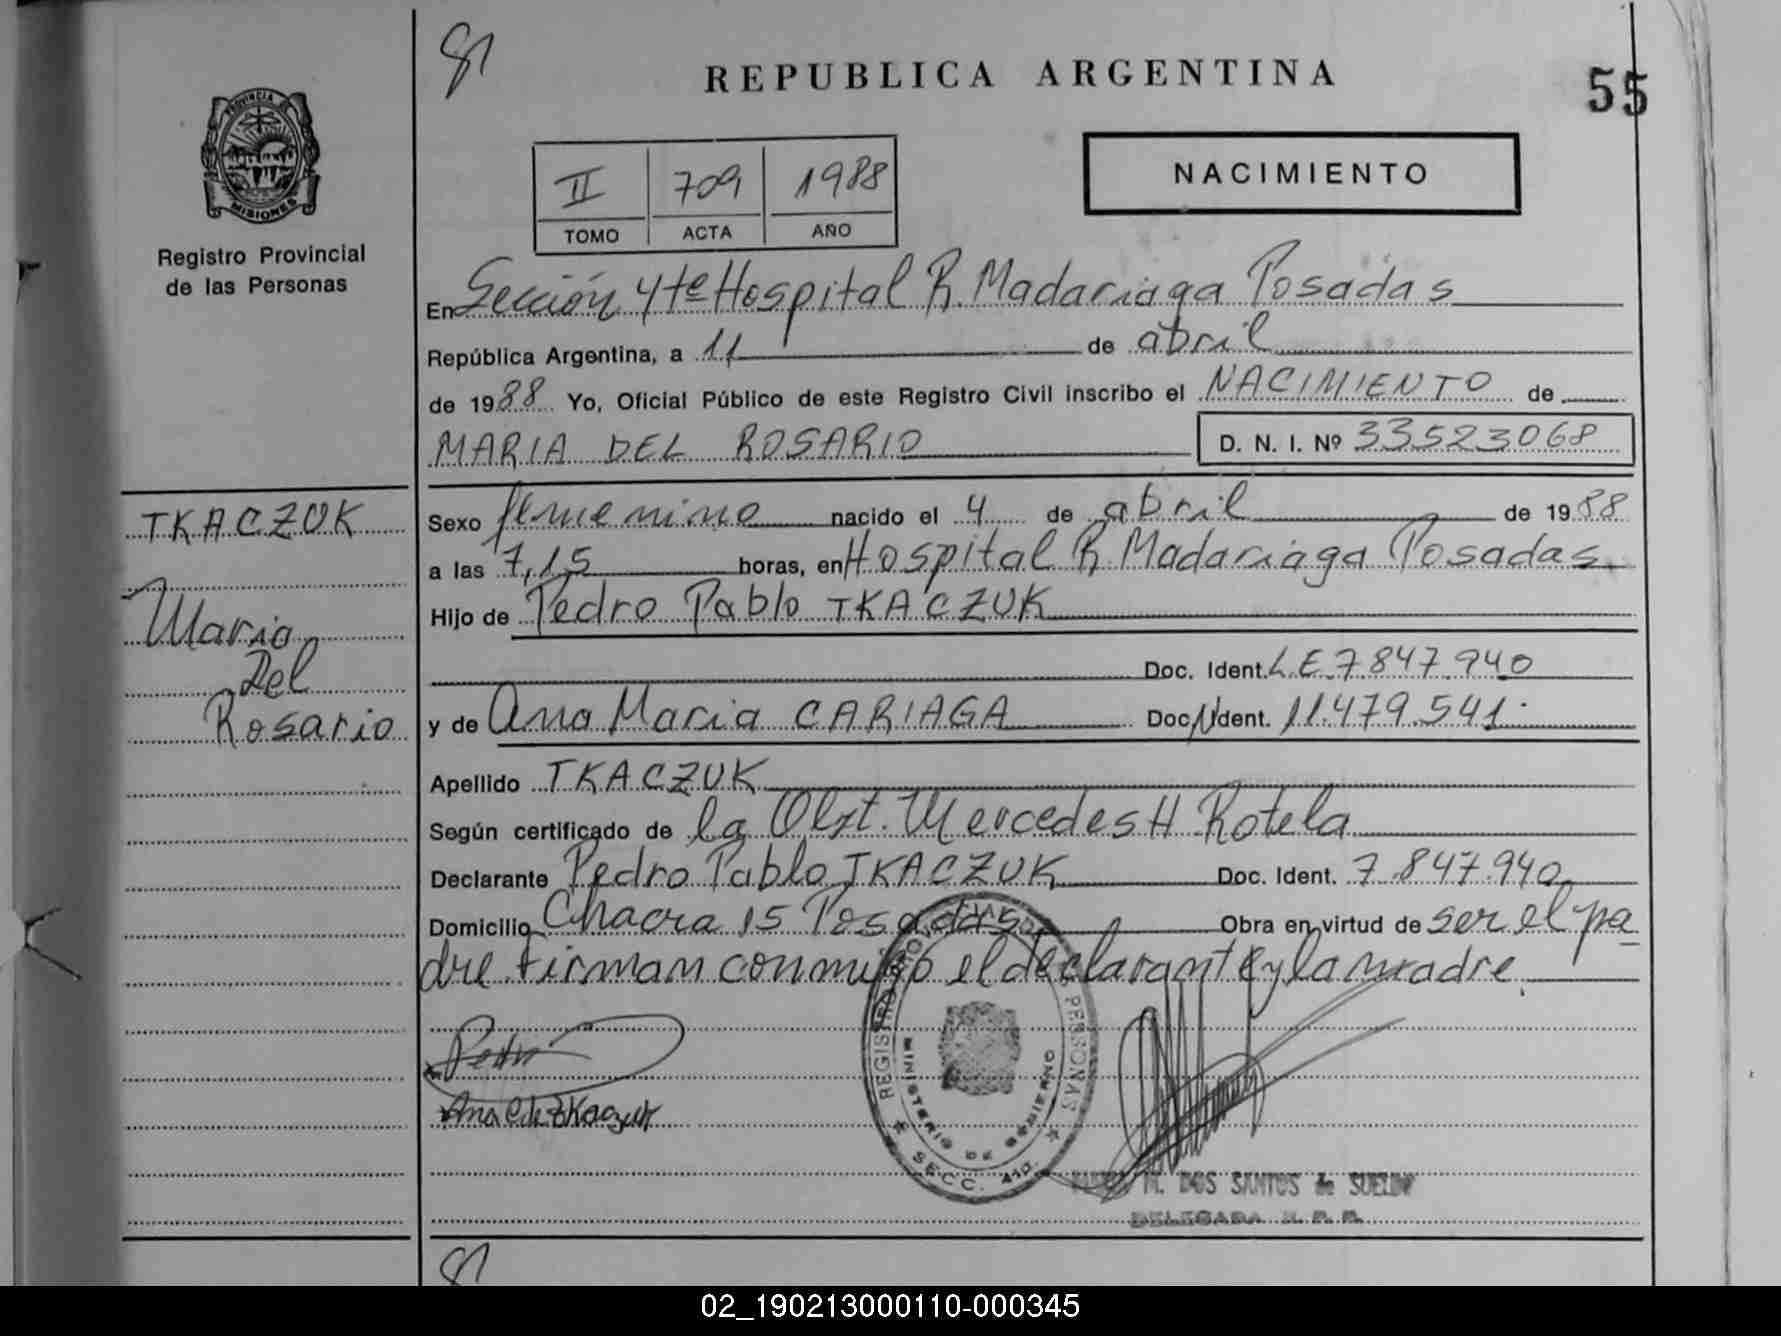 81
REPUBLICA ARGENTINA
55
PROVINCIA DE
MISIONES
Registro Provincial
de las Personas
II 709 1988
TOMO ACTA AÑO
NACIMIENTO
En Sección 4te Hospital R. Madariaga Posadas
República Argentina, a 11 de abril
de 1988 Yo, Oficial Público de este Registro Civil inscribo el NACIMIENTO de
MARIA DEL ROSARIO D. N. I. Nº 33523068
TKACZUK
Maria
Del
Rosario
Sexo femenino nacido el 4 de abril de 1988
a las 7,15 horas, en Hospital R. Madariaga Posadas
Hijo de Pedro Pablo TKACZUK
Doc. Ident. L.E. 7847.940
y de Ana Maria CARIAGA Doc. Ident. 11.479.541
Apellido TKACZUK
Según certificado de la Obst. Mercedes H Rotela
Declarante Pedro Pablo TKACZUK Doc. Ident. 7.847.940
Domicilio Chacra 15 Posadas Obra en virtud de ser el pa
dre firman conmigo el declarante y la madre.
Pedro
Ana C de Tkaczuk
REGISTRO PROVINCIAL DE LAS PERSONAS
MINISTERIO DE GOBIERNO
SECC. 4ta.
M. DOS SANTOS de SUELDO
DELEGADA R. P. P.
81
02_190213000110-000345